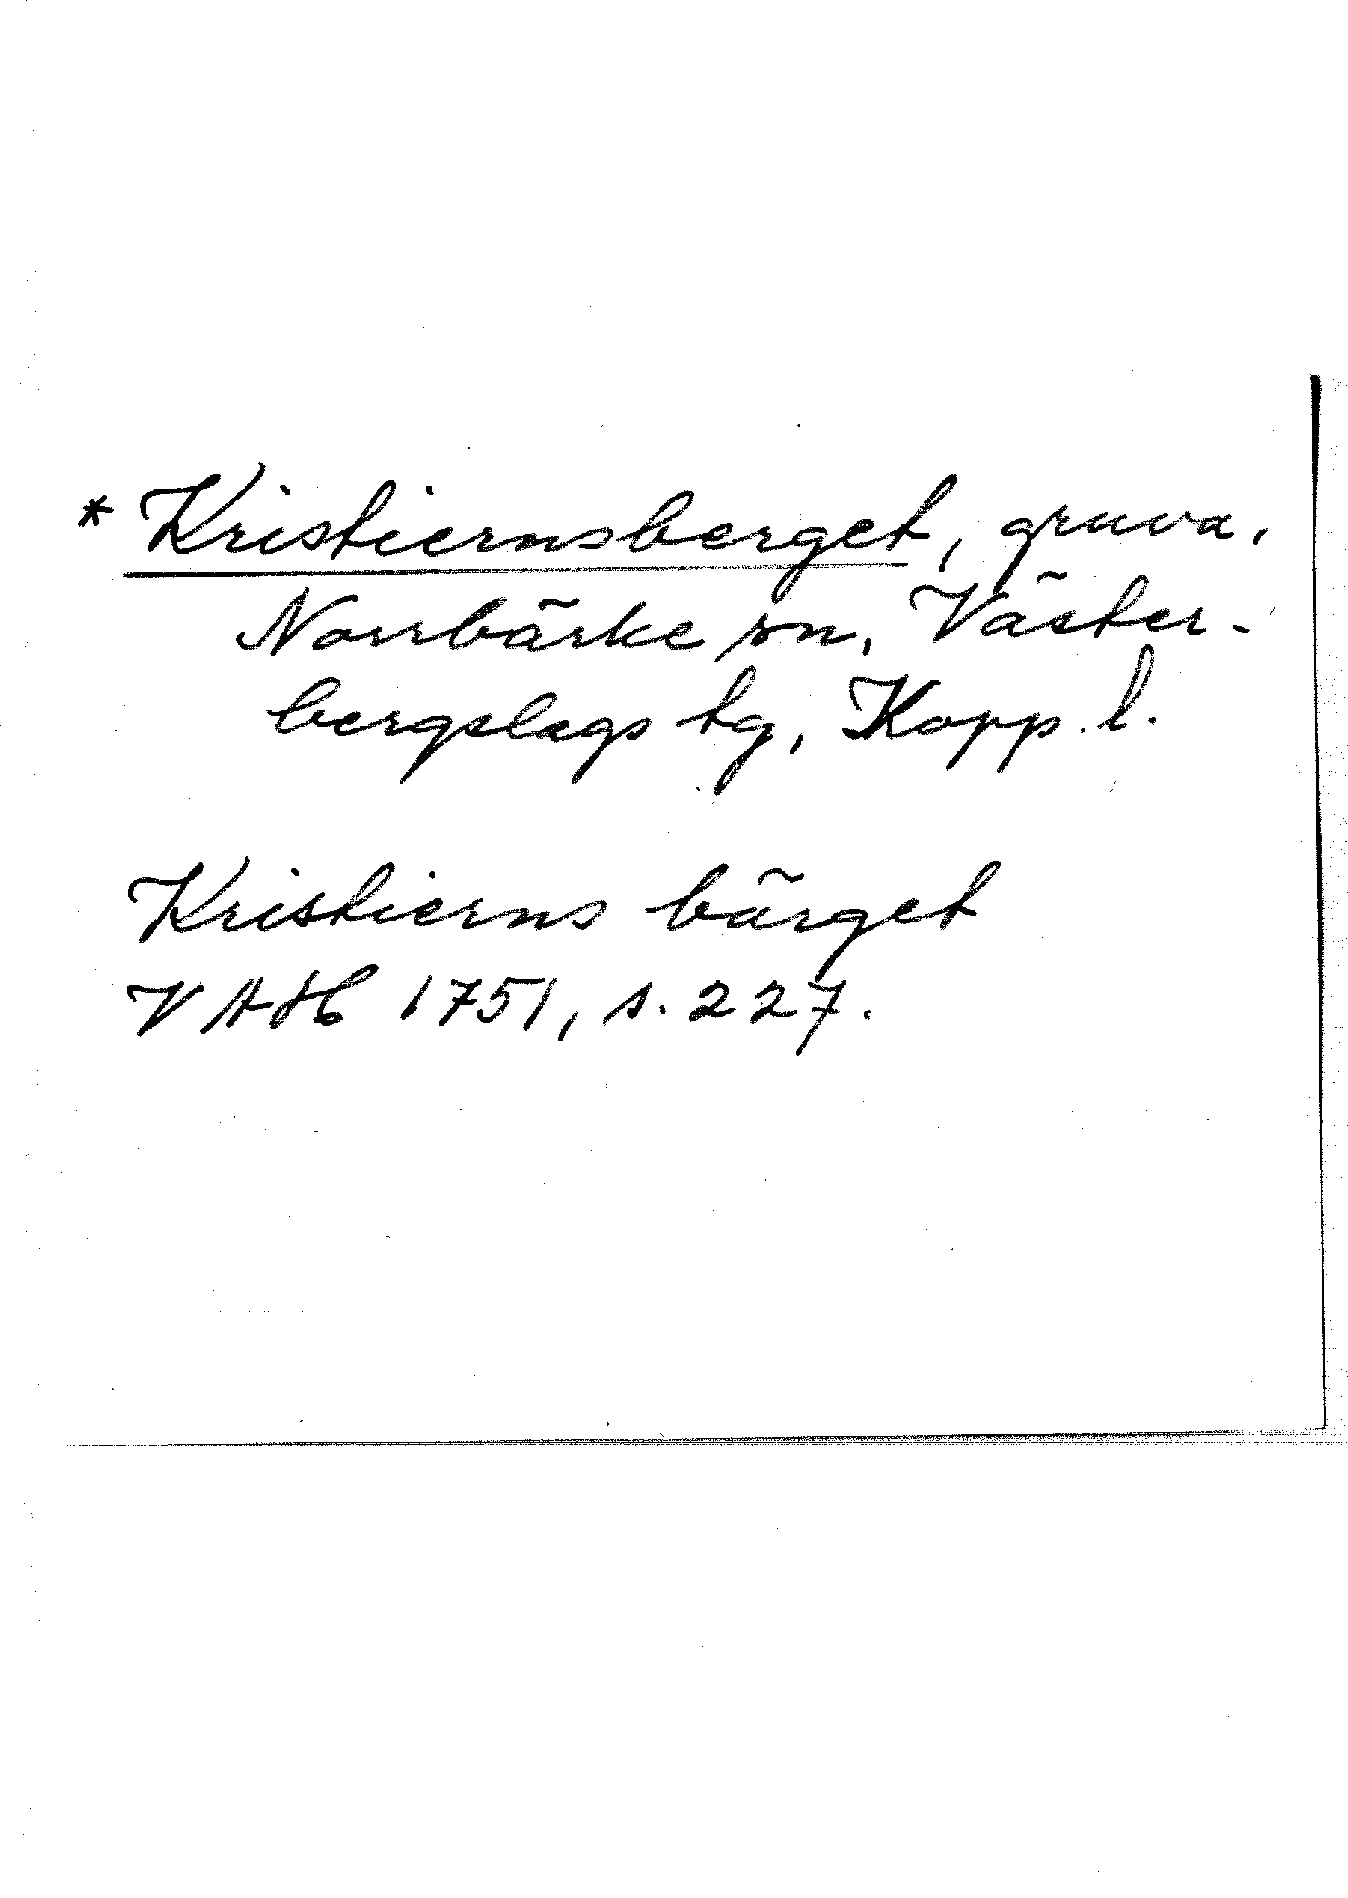 * Kristiernsberget, gruva,
Norrbärke sn, Väster-
bergslags tg, Kopp. l.
Kristierns bärget
VAH 1751, s. 227.